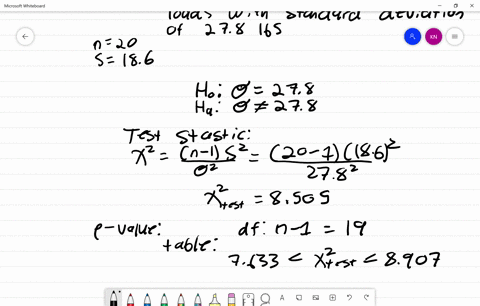 Microsoft Whiteboard
loads with standard deviation
of 27.8 lbs
n=20
S=18.6
KN
H₀: σ = 27.8
Hₐ: σ ≠ 27.8
Test Stastic:
X² = (n-1)S²/σ² = (20-1)(18.6)²/27.8²
X²test = 8.505
p-value: df: n-1 = 19
table: 7.633 < X²test < 8.907